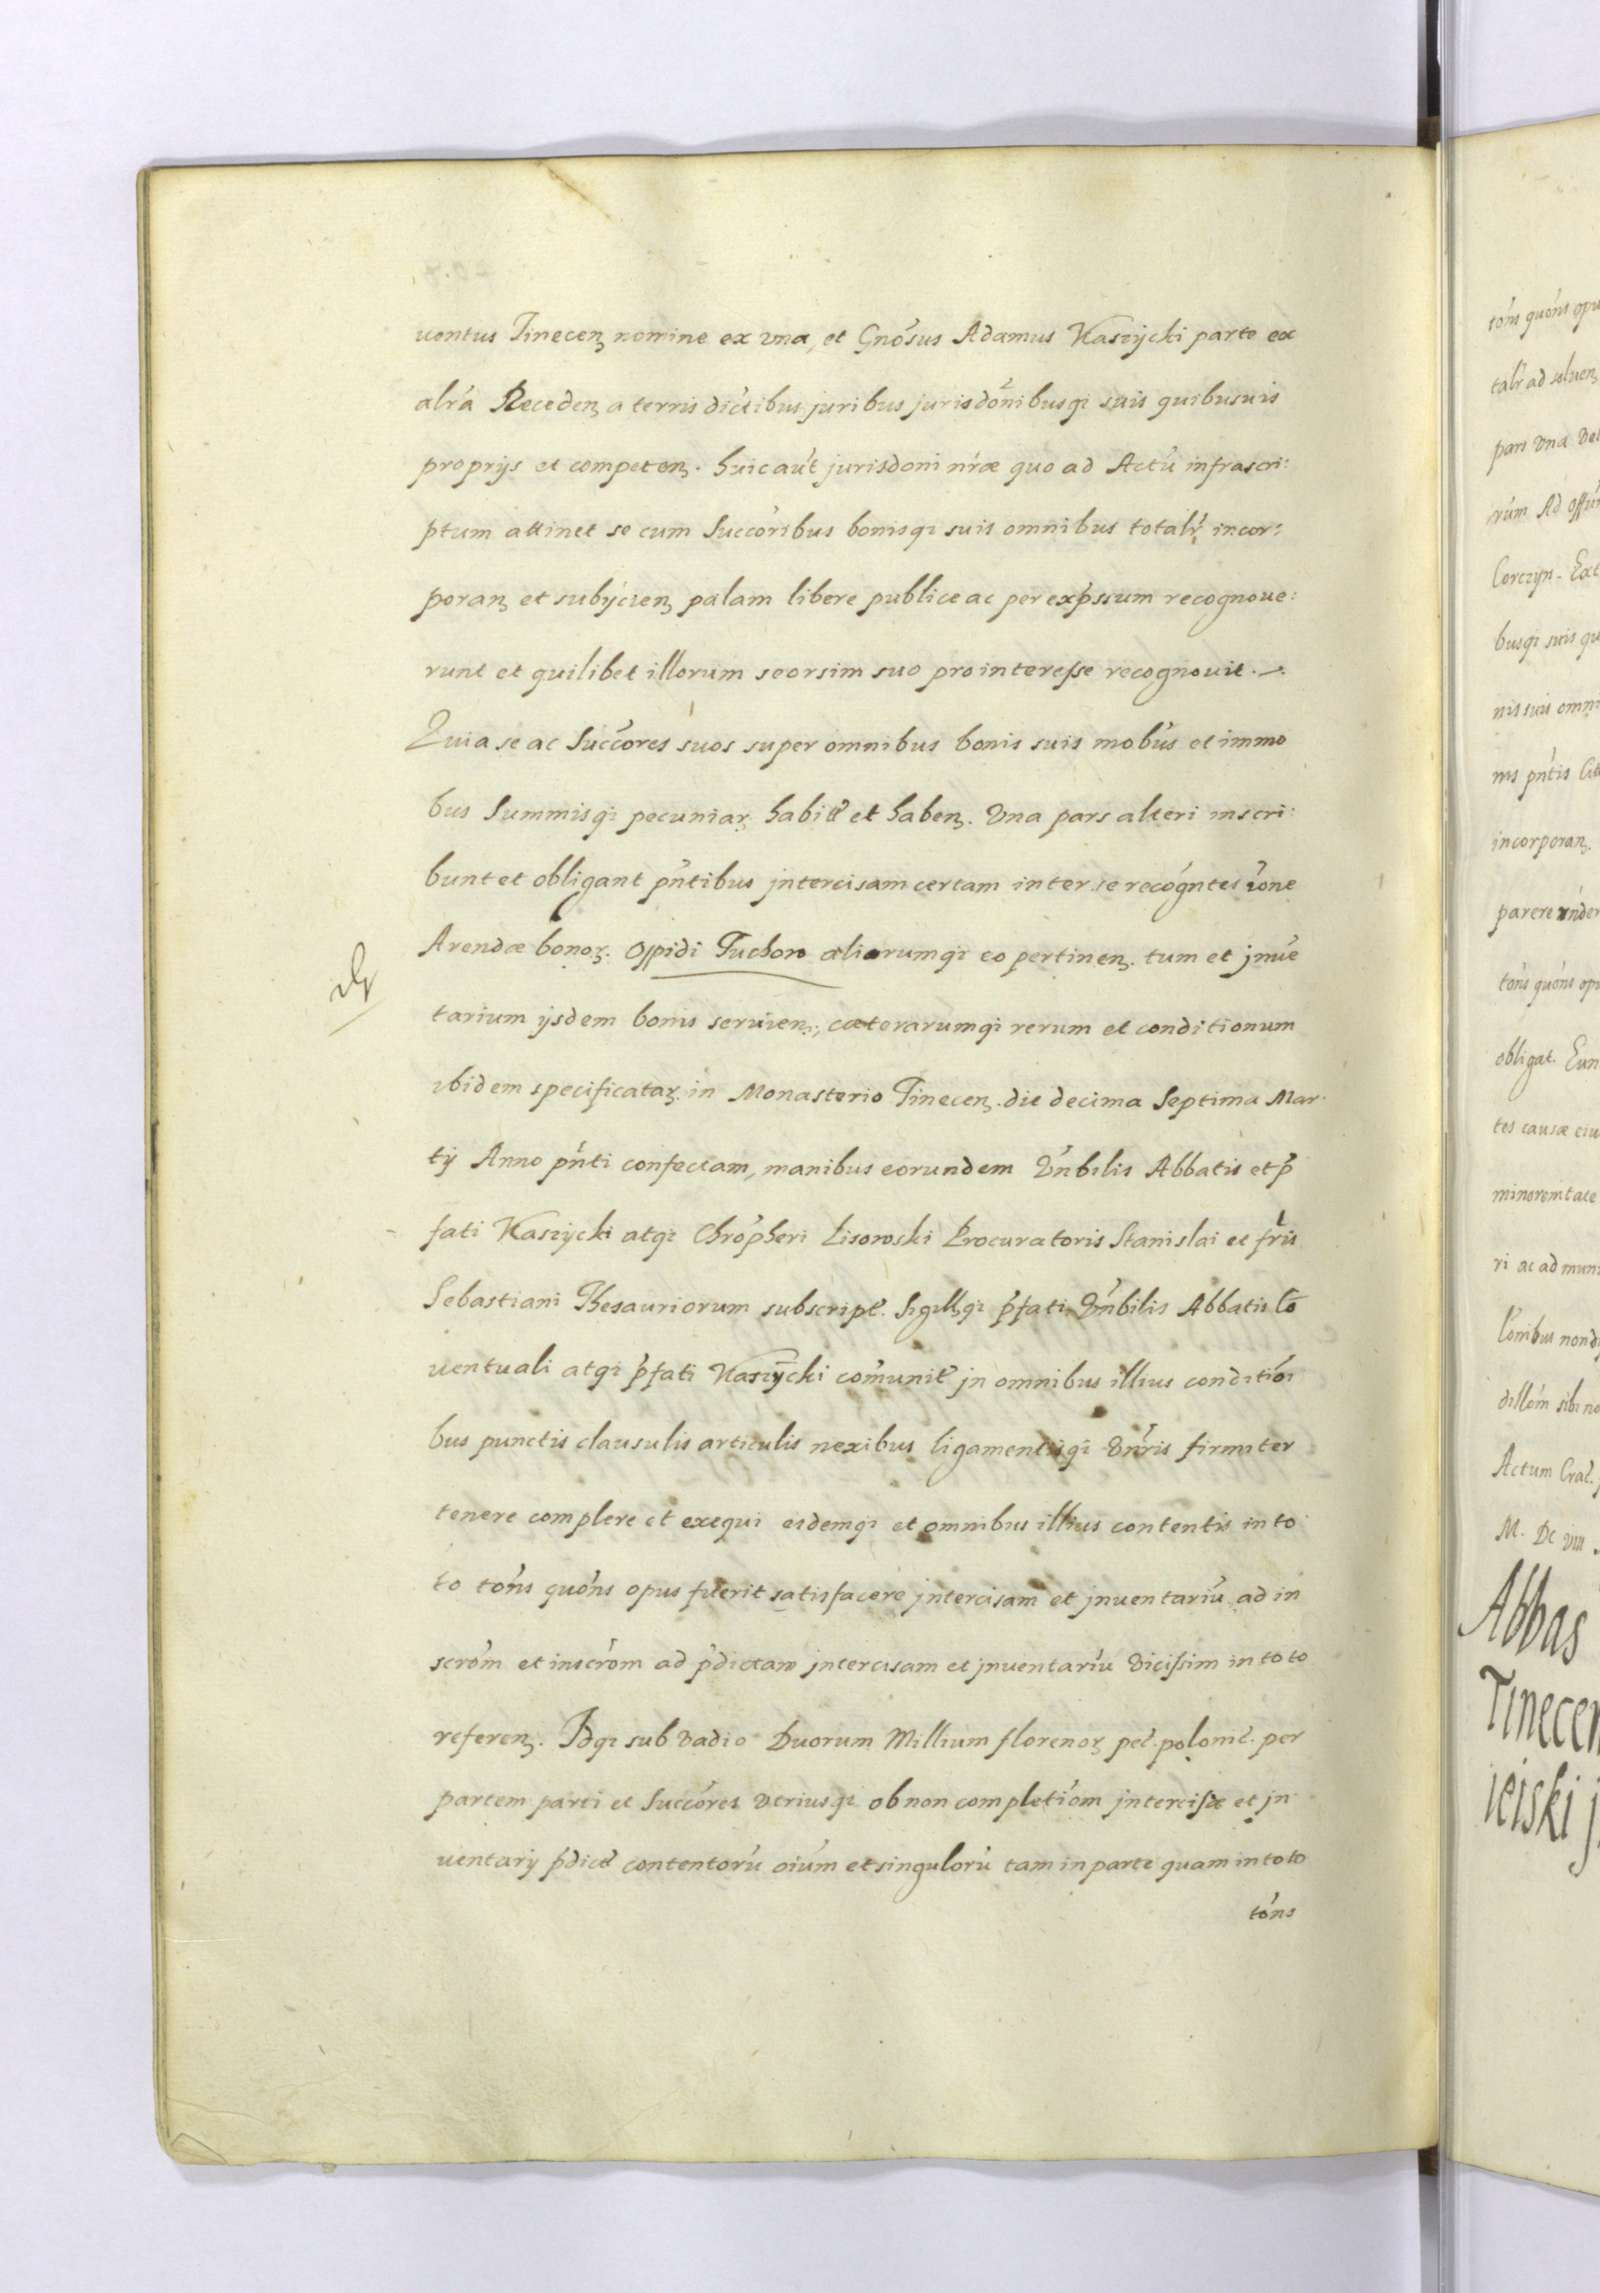 uentus Tinecenʒ nomine ex vna, et Gnósus Adamus Kaszẏcki parte ex
alrá Recedenʒ a terris dictibus juribus jurisdonibusqʒ suis quibusuis
proprijs et competenʒ. huic aút jurisdoni nrӕ quo ad Actū infrascri:
ptum attinet se cum Succoribus bonisqʒ suis omnibus totalr incor:
poranʒ et subijcienʒ palam libere publice ac per exṕssum recognoue:
runt et quilibet illorum seorsim suo pro interesse recognouit.
Quia se ac Succores suos super omnibus bonis suis mobus et immo
bus Summisqʒ pecuniarʒ habiť et habenʒ. Vna pars alteri inscri:
bunt et obligant pńtibus jntercisam certam inter se recógntes róne
Arendæ bonorʒ. Oppidi Tuchow aliorumqʒ eo pertinenʒ. tum et jnuē
tarium ijsdem bonis seruienʒ, cæterarumqʒ rerum et conditionum
ibidem specificatarʒ. in Monasterio Tinecenʒ. die decima Septima Mar
tij Anno pńti confectam, manibus eorundem Vńbilis Abbatis et ṕ
fati Kaszycki atqʒ Chróṕheri Lisowski Procuratoris Stanislai et fris
Sebastiani Thesauriorum subscripť. Sigillʒqʒ ṕfati Vńbilis Abbatis Cō
uentuali atqʒ ṕfati Kaszẏcki comuniť jn omnibus illius conditioı
bus punctis clausulis articulis nexibus ligamentisqʒ vnris firmiter
tenere complere et exequi eidemqʒ et omnibus illius contentis in to
to tóns quóns opus fuerit satisfacere jntercisam et jnuentariū ad in
scróm et inscróm ad ṕdictam jntercisam et jnuentariū vicissim in toto
referenʒ. Idqʒ sub vadio Duorum Millium florenorʒ peč. polonč. per
partem parti et Succóres vtriusqʒ ob non completióm jntercisæ et jn
uentarij ṕdicť contentorū oiúm et singulorū tam in parte quam in toto
tóns
tóns quóns opu
talr ad soluenʒ
pars vna
rum Ad Offiū
Corczyn. Ex
busqʒ suis qu
nis suis omni
ms pńtis
incorporanʒ.
parere
tóns quóns opu
obligat. Eun
tes causæ eiu
minorennitate
ri ac ad mun
nónibus nond
sibi no
Actum Crač.
M. DC VIII
Abbas
Tinecen